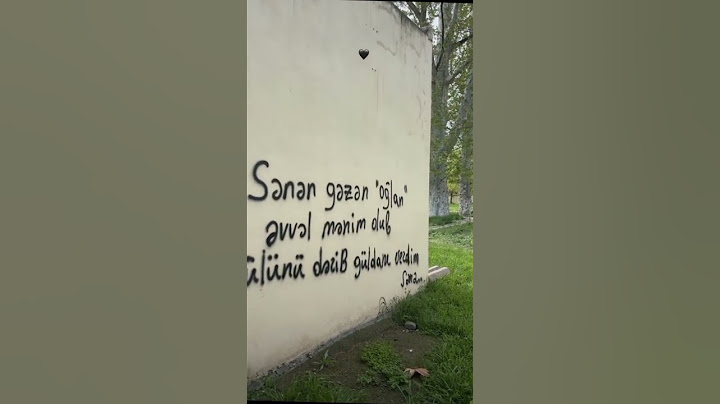 Sənən gəzən "oğlan"
əvvəl mənim olub
ülünü dərib güldanı verdim
sənə...